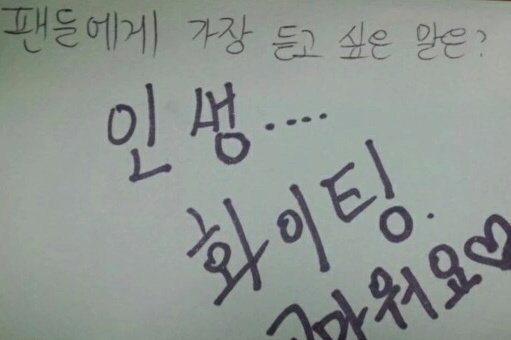 팬들에게 가장 듣고 싶은 말은?
인생....
화이팅.
고마워요♡